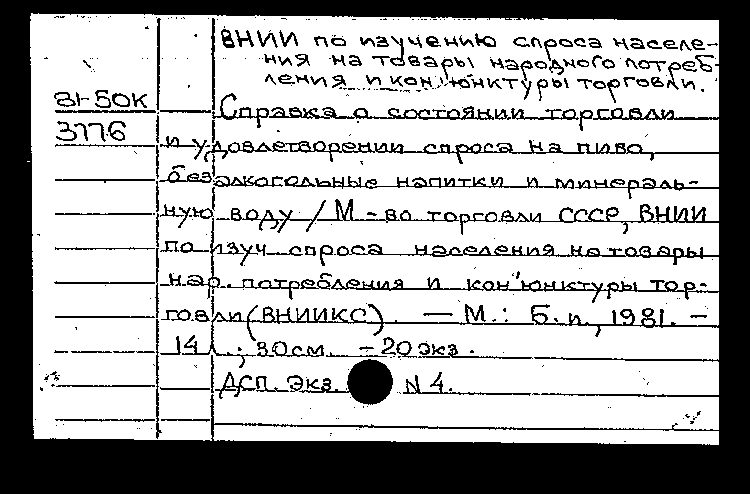 ВНИИ по изучению спроса населе-
ния на товары народного потреб-
ления и кон'юнктуры торговли.
81-50К
Справка о состоянии торговли
3776
и удовлетворении спроса на пиво,
безалкогольные напитки и минераль-
ную воду / М-во торговли СССР, ВНИИ
по изуч спроса населения на товары
нар. потребления и кон'юнктуры тор-
говли (ВНИИКС). — М.: Б.и., 1981. –
14 л.; 30см. – 20 экз.
ДСП. Экз. N 4.